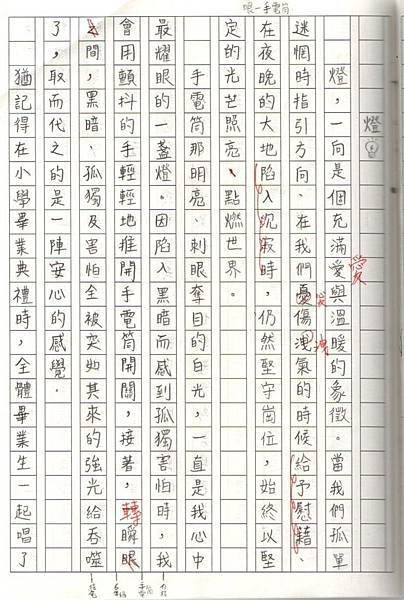 眼一手電筒
燈
燈，一向是個充滿愛與溫暖的象徵。當我們孤單
愛
迷惘時指引方向、在我們憂傷洩氣的時候給予慰藉、
洩
在夜晚的大地陷入沉寂時，仍然堅守崗位，始終以堅
定的光芒照亮、點燃世界。
手電筒那明亮、刺眼奪目的白光，一直是我心中
最耀眼的一盞燈。因陷入黑暗而感到孤獨害怕時，我
會用顫抖的手輕輕地推開手電筒開關，接著，轉瞬眼
之間，黑暗、孤獨及害怕全被突如其來的強光給吞噬
了，取而代之的是一陣安心的感覺。
猶記得在小學畢業典禮時，全體畢業生一起唱了